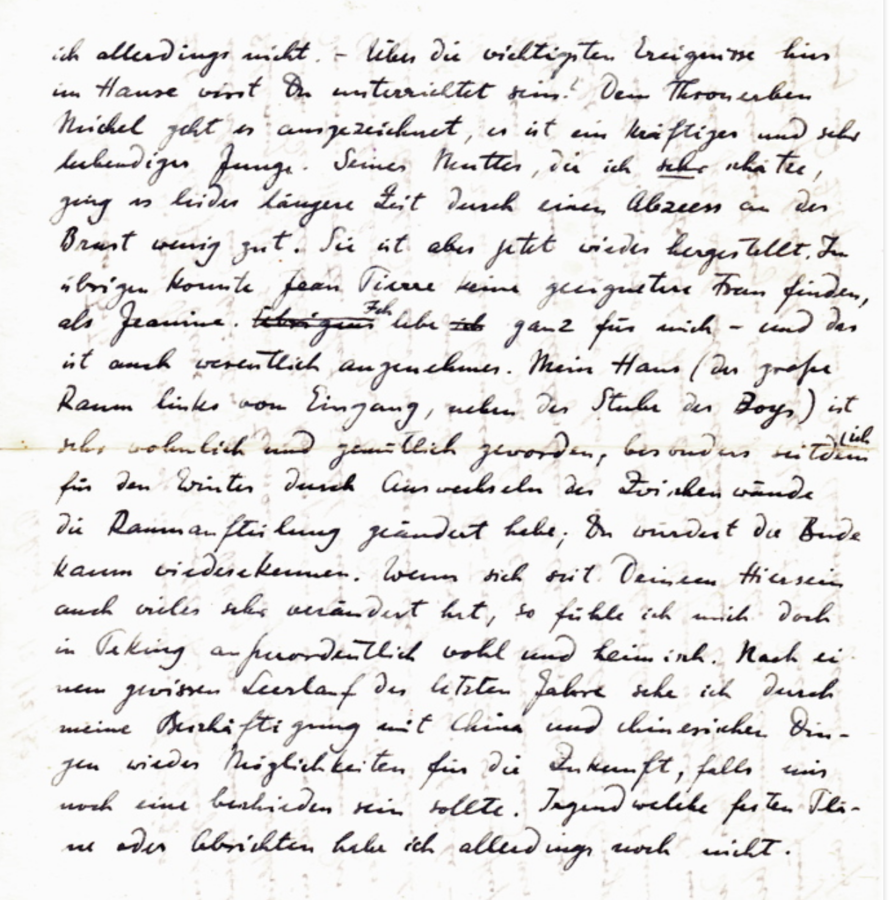 ich allerdings nicht. – Über die wichtigsten Ereignisse hier
im Hause wirst Du unterrichtet sein! Dem Thronerben
Michel geht es ausgezeichnet, es ist ein kräftiger und sehr
lebendiger Junge. Seiner Mutter, die ich sehr schätze,
ging es leider längere Zeit durch einen Abzcess an der
Brust wenig gut. Sie ist aber jetzt wieder hergestellt. Im
übrigen konnte Jean Pierre keine geeignetere Frau finden,
als Jeanine. Übrigens Ich lebe ich ganz für mich – und das
ist auch wesentlich angenehmer. Mein Haus (der große
Raum links vom Eingang, neben der Stube der Boys) ist
sehr wohnlich und gemütlich geworden, besonders seitdem ich
für den Winter durch Auswechseln der Zwischenwände
die Raumaufteilung geändert habe; Du würdest die Bude
kaum wiedererkennen. Wenn sich seit Deinem Hiersein
auch vieles sehr verändert hat, so fühle ich mich doch
in Peking außerordentlich wohl und heimisch. Nach ei-
nem gewissen Leerlauf der letzten Jahre sehe ich durch
meine Beschäftigung mit China und chinesischen Din-
gen wieder Möglichkeiten für die Zukunft, falls uns
noch eine beschieden sein sollte. Irgendwelche festen Plä-
ne oder Absichten habe ich allerdings noch nicht.